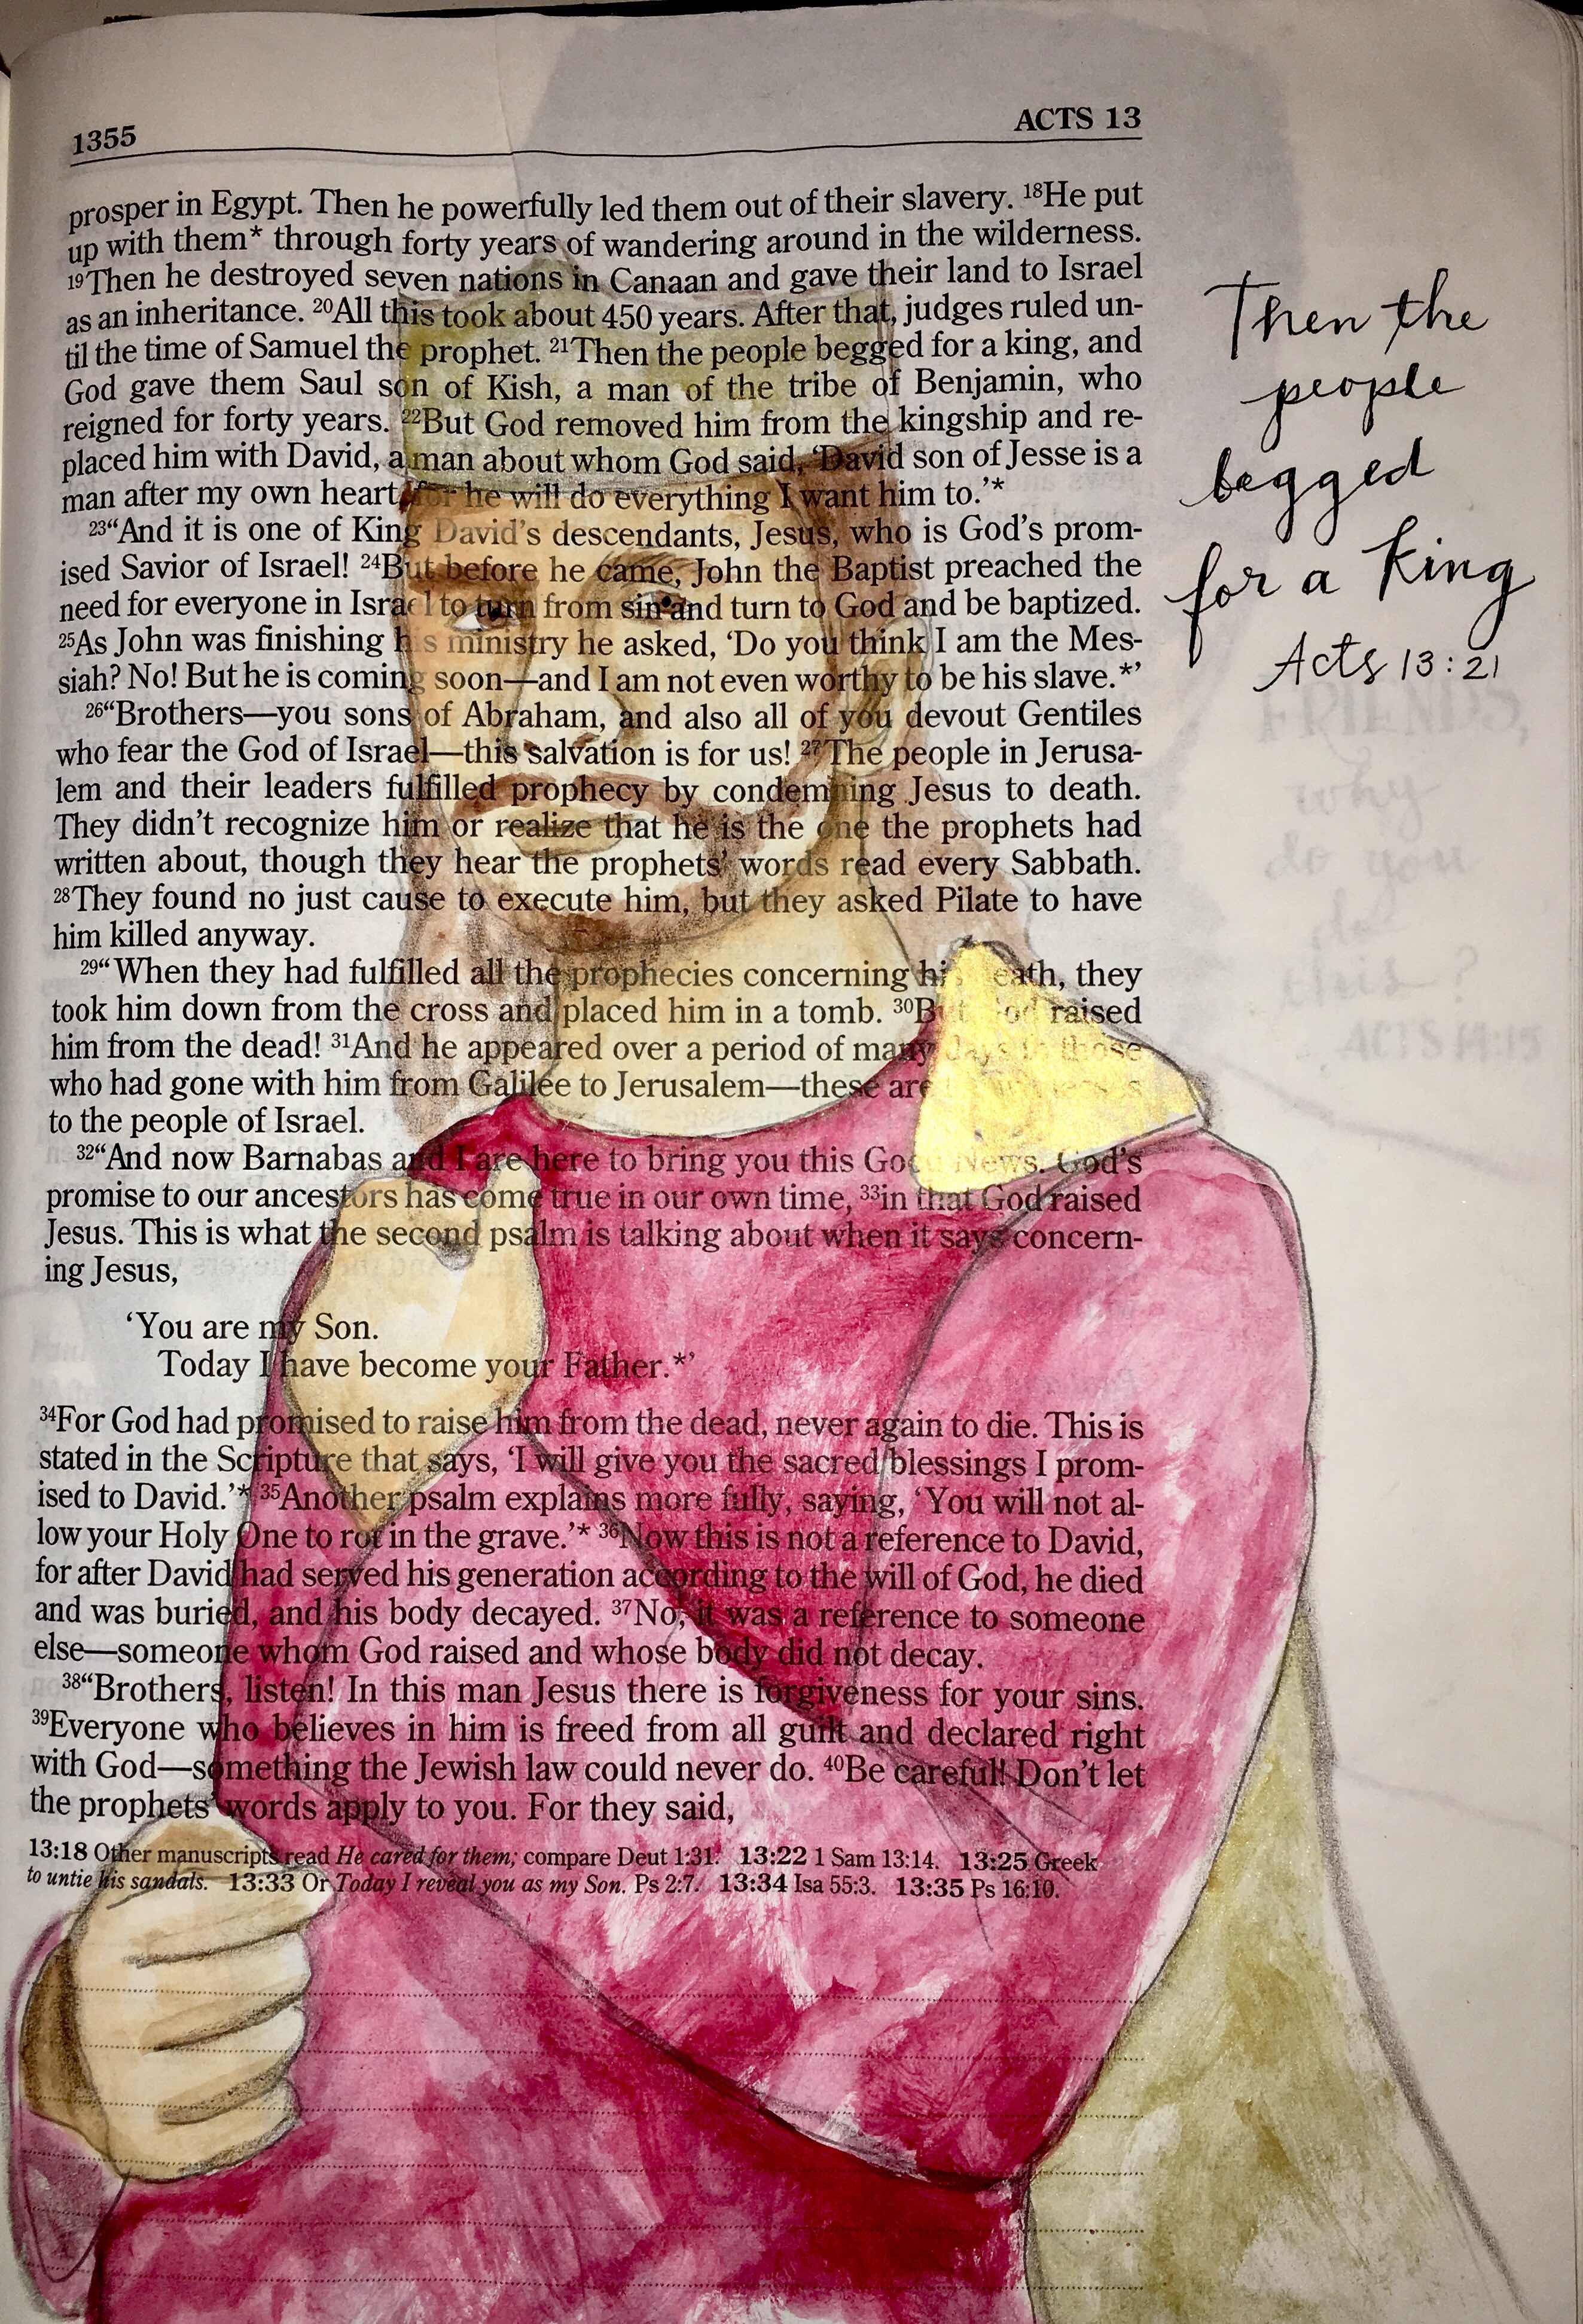 1355
ACTS 13
prosper in Egypt. Then he powerfully led them out of their slavery. 18He put
up with them* through forty years of wandering around in the wilderness.
19Then he destroyed seven nations in Canaan and gave their land to Israel
as an inheritance. 20All this took about 450 years. After that, judges ruled un-
til the time of Samuel the prophet. 21Then the people begged for a king, and
God gave them Saul son of Kish, a man of the tribe of Benjamin, who
reigned for forty years. 22But God removed him from the kingship and re-
placed him with David, a man about whom God said, ‘David son of Jesse is a
man after my own heart, for he will do everything I want him to.’*
23“And it is one of King David’s descendants, Jesus, who is God’s prom-
ised Savior of Israel! 24But before he came, John the Baptist preached the
need for everyone in Israel to turn from sin and turn to God and be baptized.
25As John was finishing his ministry he asked, ‘Do you think I am the Mes-
siah? No! But he is coming soon—and I am not even worthy to be his slave.*’
26“Brothers—you sons of Abraham, and also all of you devout Gentiles
who fear the God of Israel—this salvation is for us! 27The people in Jerusa-
lem and their leaders fulfilled prophecy by condemning Jesus to death.
They didn’t recognize him or realize that he is the one the prophets had
written about, though they hear the prophets’ words read every Sabbath.
28They found no just cause to execute him, but they asked Pilate to have
him killed anyway.
29“When they had fulfilled all the prophecies concerning his death, they
took him down from the cross and placed him in a tomb. 30But God raised
him from the dead! 31And he appeared over a period of many days to those
who had gone with him from Galilee to Jerusalem—these are
to the people of Israel.
32“And now Barnabas and I are here to bring you this Good News. God’s
promise to our ancestors has come true in our own time, 33in that God raised
Jesus. This is what the second psalm is talking about when it says concern-
ing Jesus,
‘You are my Son.
Today I have become your Father.*’
34For God had promised to raise him from the dead, never again to die. This is
stated in the Scripture that says, ‘I will give you the sacred blessings I prom-
ised to David.’* 35Another psalm explains more fully, saying, ‘You will not al-
low your Holy One to rot in the grave.’* 36Now this is not a reference to David,
for after David had served his generation according to the will of God, he died
and was buried, and his body decayed. 37No, it was a reference to someone
else—someone whom God raised and whose body did not decay.
38“Brothers, listen! In this man Jesus there is forgiveness for your sins.
39Everyone who believes in him is freed from all guilt and declared right
with God—something the Jewish law could never do. 40Be careful! Don’t let
the prophets’ words apply to you. For they said,
13:18 Other manuscripts read He cared for them; compare Deut 1:31. 13:22 1 Sam 13:14. 13:25 Greek
to untie his sandals. 13:33 Or Today I reveal you as my Son. Ps 2:7. 13:34 Isa 55:3. 13:35 Ps 16:10.
Then the
people
begged
for a King
Acts 13:21
FRIENDS,
why
do you
do
this?
ACTS 14:15